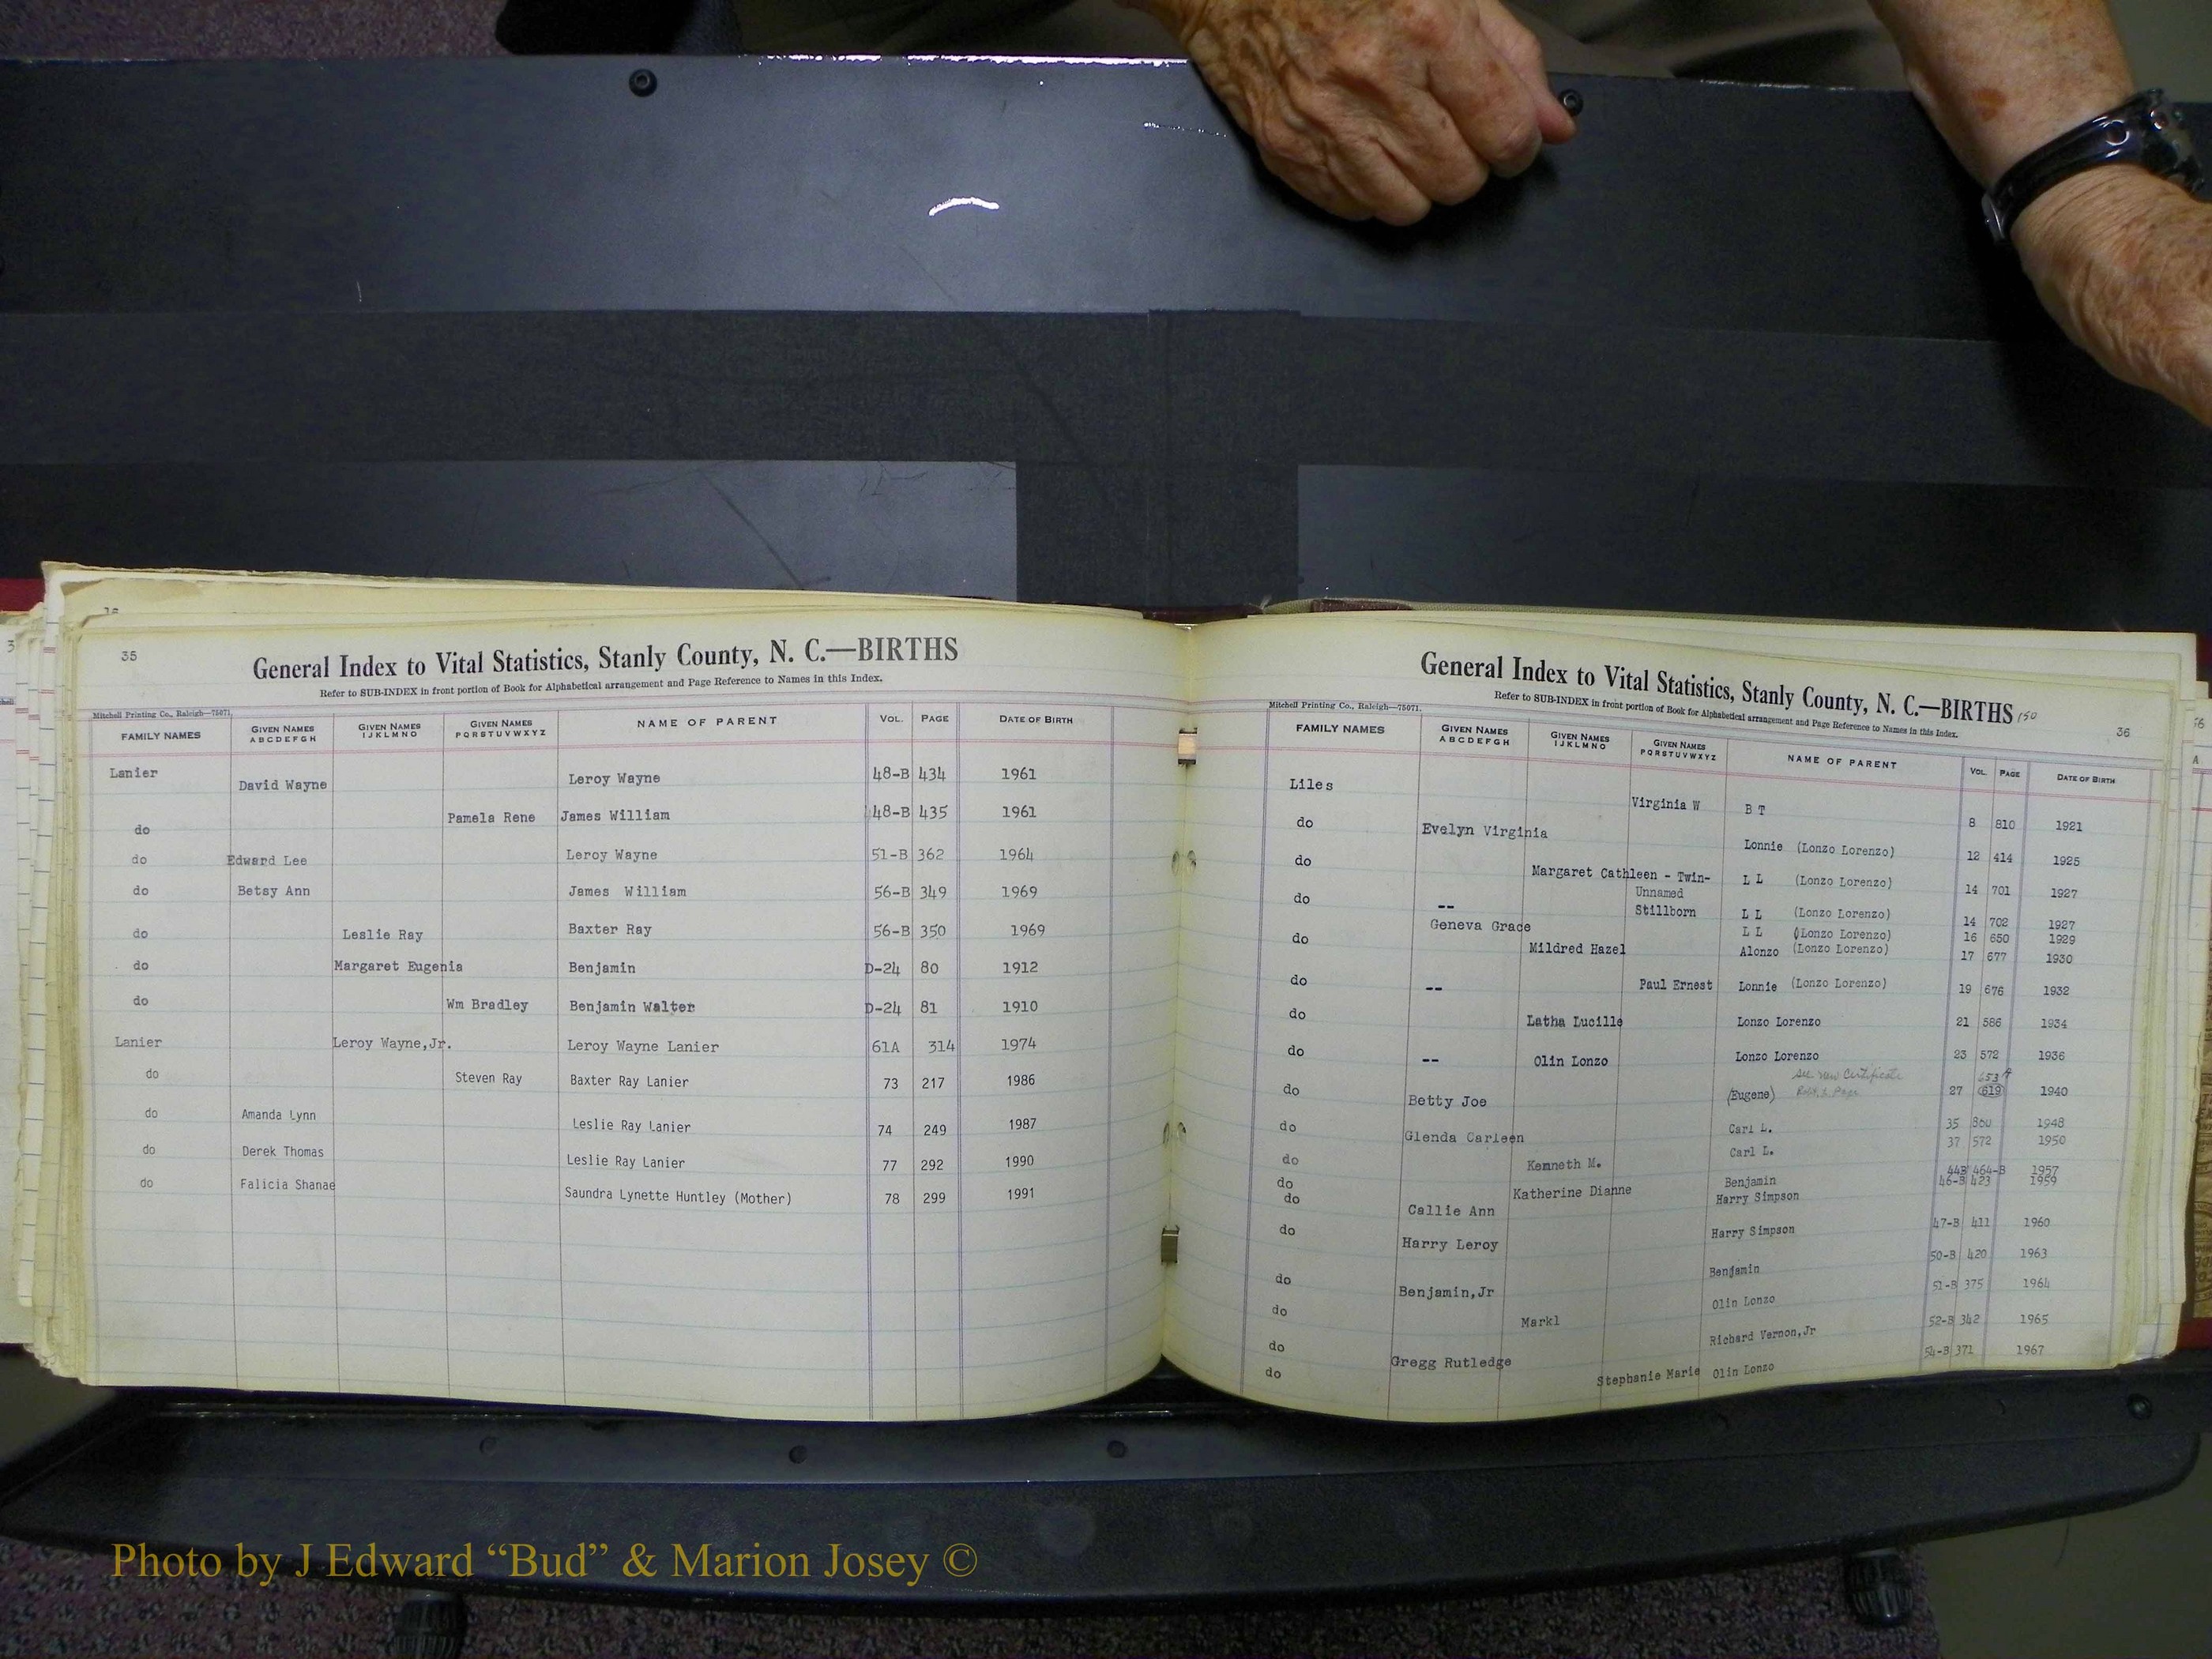 35
General Index to Vital Statistics, Stanly County, N. C.—BIRTHS
Refer to SUB-INDEX in front portion of Book for Alphabetical arrangement and Page Reference to Names in this Index.
Mitchell Printing Co., Raleigh—75071.
FAMILY NAMES GIVEN NAMES ABCDEFGH GIVEN NAMES IJKLMNO GIVEN NAMES PQRSTUVWXYZ NAME OF PARENT VOL. PAGE DATE OF BIRTH
Lanier David Wayne Leroy Wayne 48-B 434 1961
do Pamela Rene James William 48-B 435 1961
do Edward Lee Leroy Wayne 51-B 362 1964
do Betsy Ann James William 56-B 349 1969
do Leslie Ray Baxter Ray 56-B 350 1969
do Margaret Eugenia Benjamin D-24 80 1912
do Wm Bradley Benjamin Walter D-24 81 1910
Lanier Leroy Wayne,Jr. Leroy Wayne Lanier 61A 314 1974
do Steven Ray Baxter Ray Lanier 73 217 1986
do Amanda Lynn Leslie Ray Lanier 74 249 1987
do Derek Thomas Leslie Ray Lanier 77 292 1990
do Falicia Shanae Saundra Lynette Huntley (Mother) 78 299 1991
General Index to Vital Statistics, Stanly County, N. C.—BIRTHS 150
Refer to SUB-INDEX in front portion of Book for Alphabetical arrangement and Page Reference to Names in this Index.
36
Mitchell Printing Co., Raleigh—75071.
FAMILY NAMES GIVEN NAMES ABCDEFGH GIVEN NAMES IJKLMNO GIVEN NAMES PQRSTUVWXYZ NAME OF PARENT VOL. PAGE DATE OF BIRTH
Liles Virginia W B T 8 810 1921
do Evelyn Virginia Lonnie (Lonzo Lorenzo) 12 414 1925
do Margaret Cathleen - Twin- L L (Lonzo Lorenzo) 14 701 1927
do -- Unnamed L L (Lonzo Lorenzo) 14 702 1927
Stillborn
Geneva Grace L L (Lonzo Lorenzo) 16 650 1929
do Mildred Hazel Alonzo (Lonzo Lorenzo) 17 677 1930
do -- Paul Ernest Lonnie (Lonzo Lorenzo) 19 676 1932
do Latha Lucille Lonzo Lorenzo 21 586 1934
do -- Olin Lonzo Lonzo Lorenzo 23 572 1936
See new Certificate 653
do Betty Joe (Eugene) 27 619 1940
do Glenda Carleen Carl L. 35 860 1948
do Kenneth M. Carl L. 37 572 1950
do Katherine Dianne Benjamin 44B 464-B 1957
do Callie Ann Harry Simpson 46-B 423 1959
do Harry Leroy Harry Simpson 47-B 411 1960
do Benjamin,Jr Benjamin 50-B 420 1963
do Markl Olin Lonzo 51-B 375 1964
do Gregg Rutledge Richard Vernon,Jr 52-B 342 1965
do Stephanie Marie Olin Lonzo 54-B 371 1967
Photo by J Edward “Bud” & Marion Josey ©